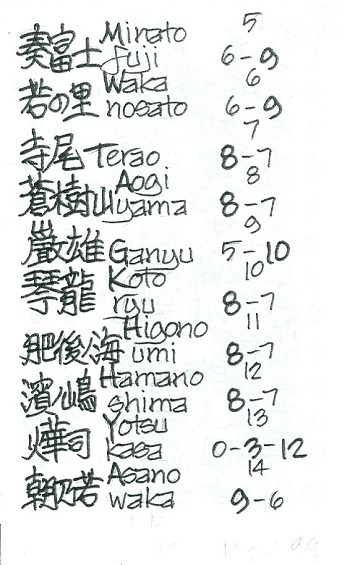 5
奏富士 Minato fuji 6-9
6
若の里 Waka nosato 6-9
7
寺尾 Terao 8-7
8
蒼樹山 Aogi yama 8-7
9
巌雄 Ganyu 5-10
10
琴龍 Koto ryu 8-7
11
肥後ノ海 Higono umi 8-7
12
濱ノ嶋 Hamano shima 8-7
13
燁司 Yotsu kasa 0-3-12
14
朝乃若 Asano waka 9-6